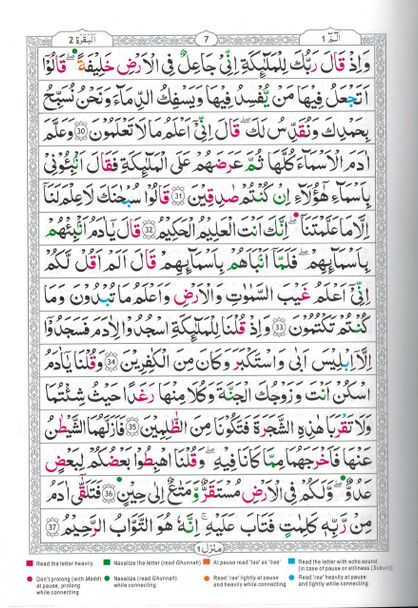 الٓمّٓ ١
7
اَلْبَقَرَة ٢
وَاِذْ قَالَ رَبُّكَ لِلْمَلٰٓئِكَةِ اِنِّيْ جَاعِلٌ فِى الْاَرْضِ خَلِيْفَةً ؕ قَالُوْٓا
اَتَجْعَلُ فِيْهَا مَنْ يُّفْسِدُ فِيْهَا وَيَسْفِكُ الدِّمَآءَ ۚ وَنَحْنُ نُسَبِّحُ
بِحَمْدِكَ وَنُقَدِّسُ لَكَ ؕ قَالَ اِنِّيْٓ اَعْلَمُ مَا لَا تَعْلَمُوْنَ 30 وَعَلَّمَ
اٰدَمَ الْاَسْمَآءَ كُلَّهَا ثُمَّ عَرَضَهُمْ عَلَى الْمَلٰٓئِكَةِ فَقَالَ اَنْۢبِـُٔوْنِيْ
بِاَسْمَآءِ هٰٓؤُلَآءِ اِنْ كُنْتُمْ صٰدِقِيْنَ 31 قَالُوْا سُبْحٰنَكَ لَا عِلْمَ لَنَآ
اِلَّا مَا عَلَّمْتَنَا ؕ اِنَّكَ اَنْتَ الْعَلِيْمُ الْحَكِيْمُ 32 قَالَ يٰٓاٰدَمُ اَنْۢبِئْهُمْ
بِاَسْمَآئِهِمْ ۚ فَلَمَّآ اَنْۢبَاَهُمْ بِاَسْمَآئِهِمْ ۙ قَالَ اَلَمْ اَقُلْ لَّكُمْ
اِنِّيْٓ اَعْلَمُ غَيْبَ السَّمٰوٰتِ وَالْاَرْضِ ۙ وَاَعْلَمُ مَا تُبْدُوْنَ وَمَا
كُنْتُمْ تَكْتُمُوْنَ 33 وَاِذْ قُلْنَا لِلْمَلٰٓئِكَةِ اسْجُدُوْا لِاٰدَمَ فَسَجَدُوْٓا
اِلَّآ اِبْلِيْسَ ؕ اَبٰى وَاسْتَكْبَرَ ۫ وَكَانَ مِنَ الْكٰفِرِيْنَ 34 وَقُلْنَا يٰٓاٰدَمُ
اسْكُنْ اَنْتَ وَزَوْجُكَ الْجَنَّةَ وَكُلَا مِنْهَا رَغَدًا حَيْثُ شِئْتُمَا ۪
وَلَا تَقْرَبَا هٰذِهِ الشَّجَرَةَ فَتَكُوْنَا مِنَ الظّٰلِمِيْنَ 35 فَاَزَلَّهُمَا الشَّيْطٰنُ
عَنْهَا فَاَخْرَجَهُمَا مِمَّا كَانَا فِيْهِ ۪ وَقُلْنَا اهْبِطُوْا بَعْضُكُمْ لِبَعْضٍ
عَدُوٌّ ۚ وَلَكُمْ فِى الْاَرْضِ مُسْتَقَرٌّ وَّمَتَاعٌ اِلٰى حِيْنٍ 36 فَتَلَقّٰٓى اٰدَمُ
مِنْ رَّبِّهٖ كَلِمٰتٍ فَتَابَ عَلَيْهِ ؕ اِنَّهٗ هُوَ التَّوَّابُ الرَّحِيْمُ 37
منزل ١
Read the letter heavily
Nasalize the letter (read Ghunnah)
At pause read 'taa' as 'haa'
Read the letter with echo sound (in case of pause or stillness (Sukun))
Don't prolong (with Madd) at pause, prolong while connecting
Nasalize (read Ghunnah) while connecting
Read 'raa' lightly at pause and heavily while connecting
Read 'raa' heavily at pause and lightly while connecting